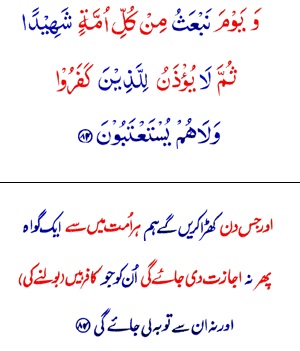 وَ يَوْمَ نَبْعَثُ مِنْ كُلِّ اُمَّةٍ شَهِيْدًا
ثُمَّ لَا يُؤْذَنُ لِلَّذِيْنَ كَفَرُوْا
وَلَاهُمْ يُسْتَعْتَبُوْنَ ﴿۸۴﴾
اور جس دن کھڑا کریں گے ہم ہر اُمت میں سے ایک گواہ
پھر نہ اجازت دی جائے گی اُن کو جو کافر ہیں (بولنے کی)
اور نہ ان سے توبہ لی جائے گی ﴿۸۴﴾